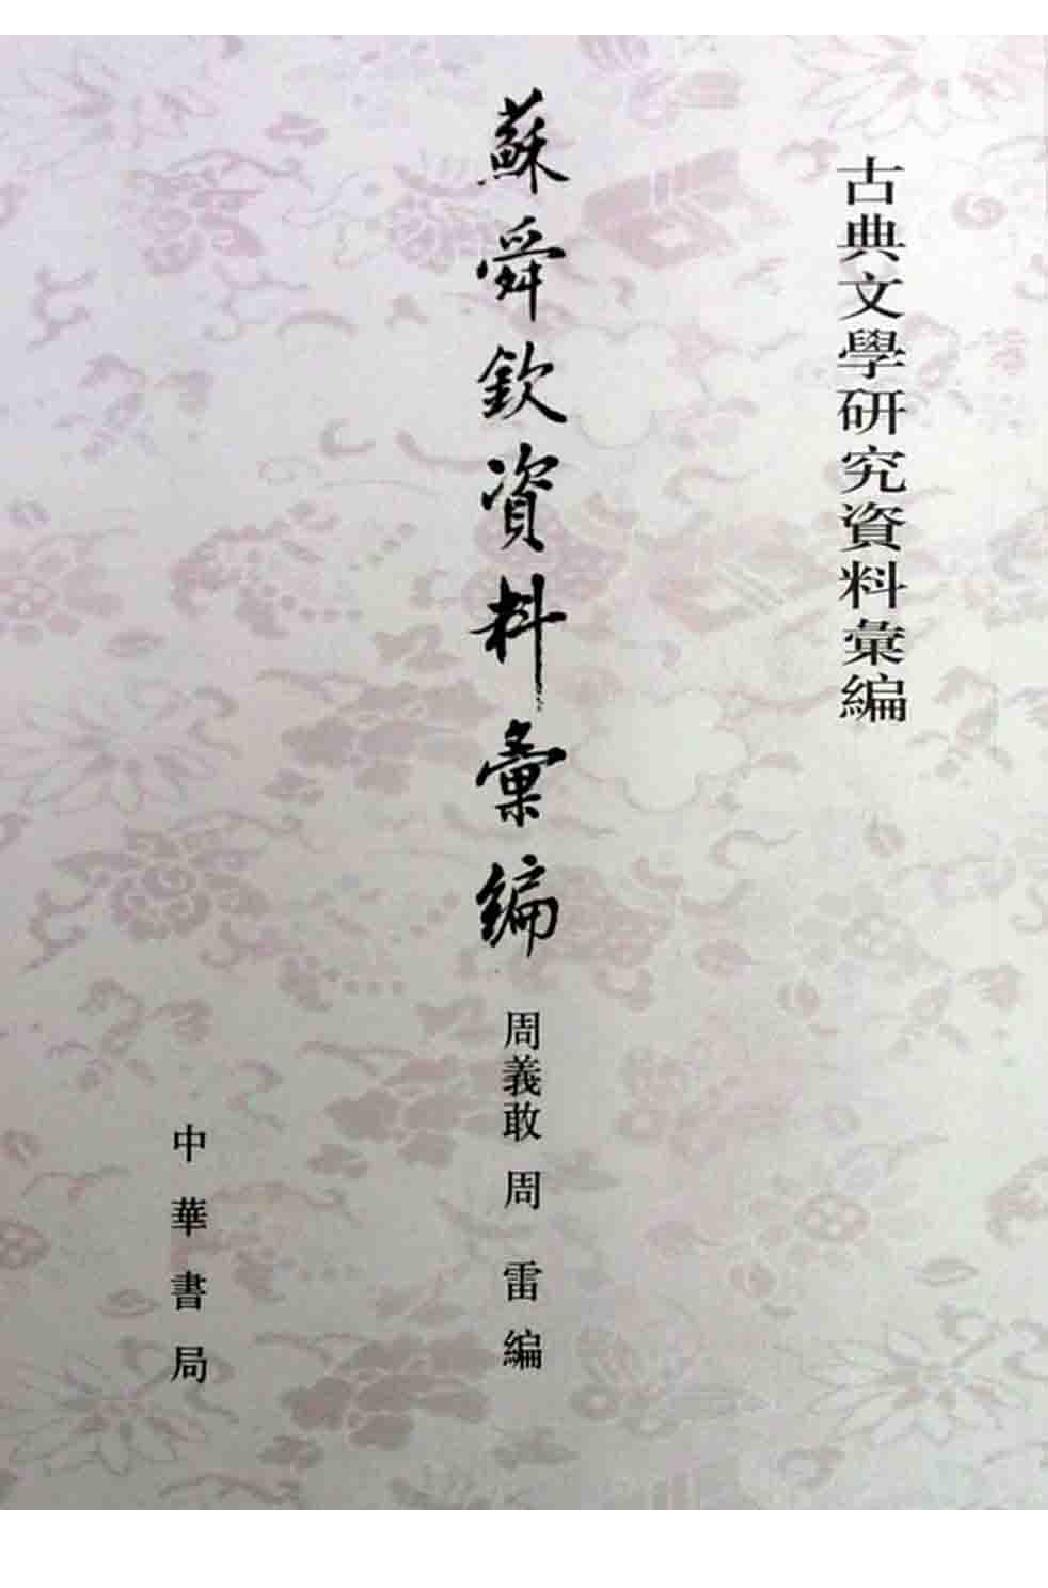 古典文學研究資料彙編
蘇舜欽資料彙編
周義敢 周雷編
中華書局